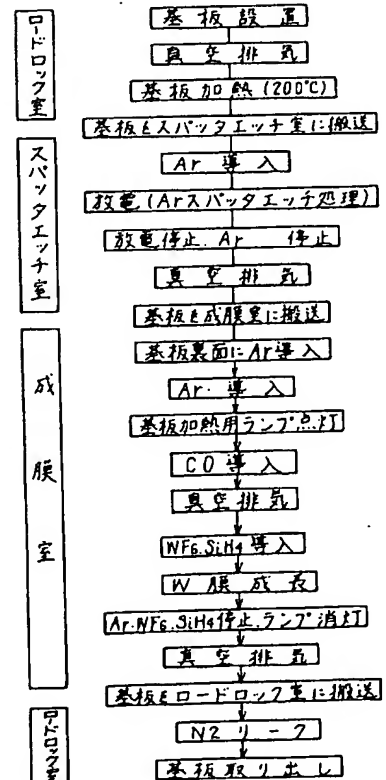 ロードロック室
基板設置
真空排気
基板加熱(200℃)
基板をスパッタエッチ室に搬送
スパッタエッチ室
Ar 導入
放電(Arスパッタエッチ処理)
放電停止.Ar 停止
真空排気
基板を成膜室に搬送
成膜室
基板裏面にAr導入
Ar. 導入
基板加熱用ランプ点灯
CO導入
真空排気
WF6.SiH4導入
W膜成長
Ar.WF6.SiH4停止.ランプ消灯
真空排気
基板をロードロック室に搬送
ロードロック室
N2リーク
基板取り出し